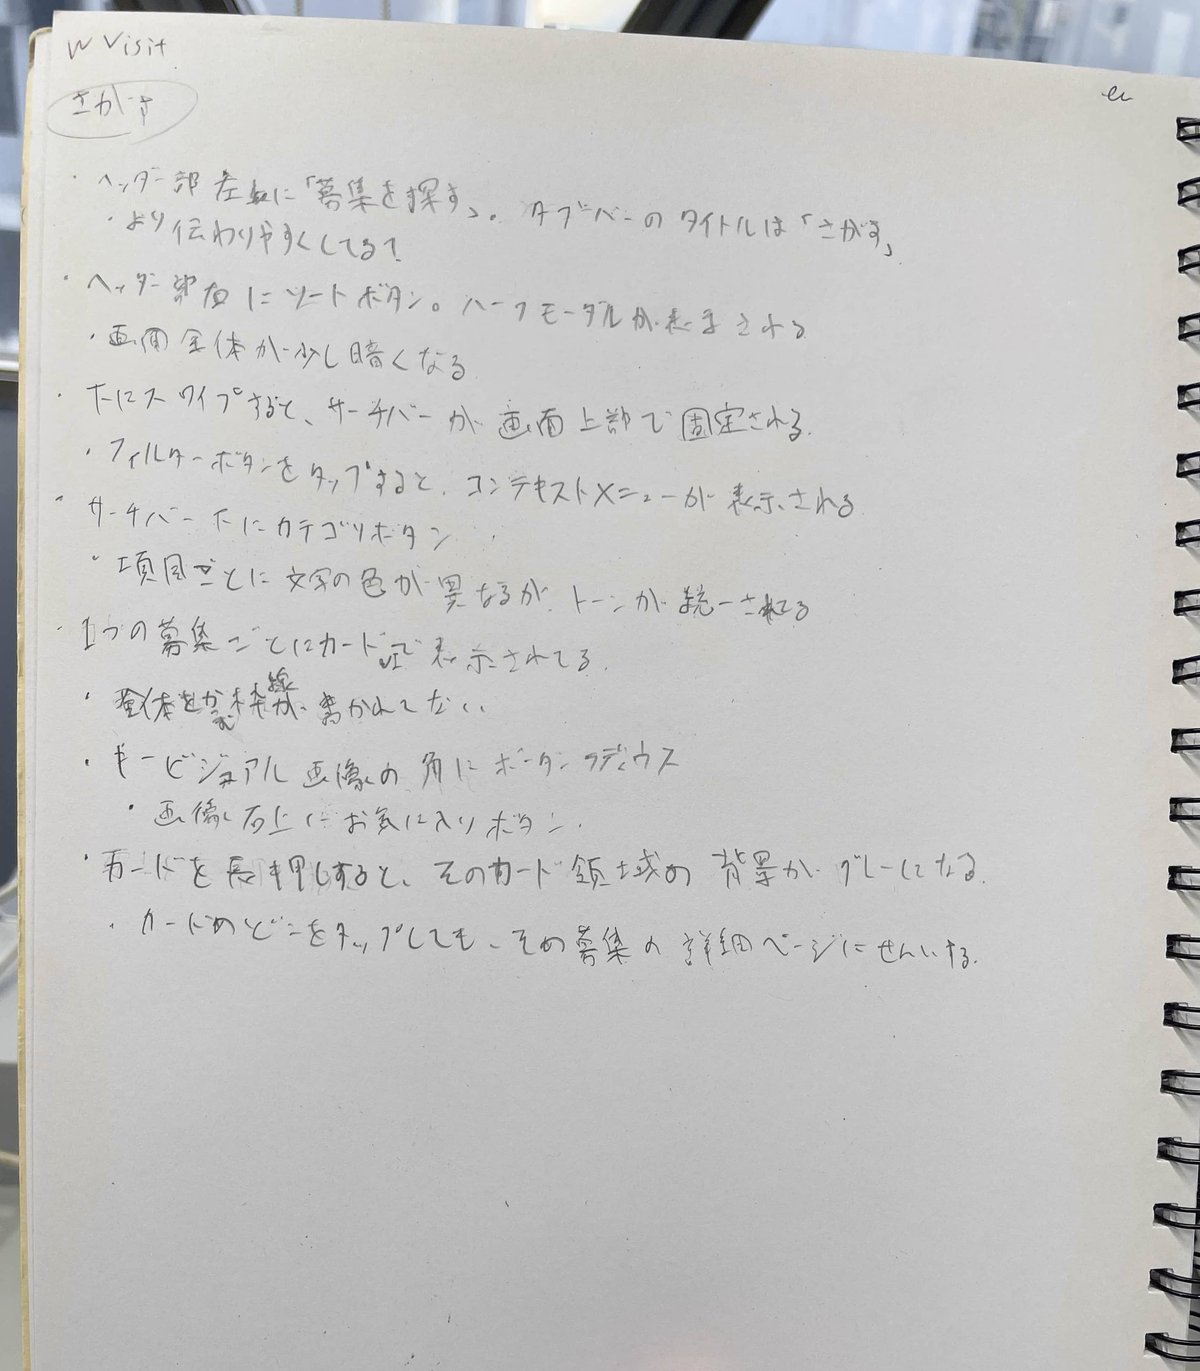 W Visit
さがす
・ヘッダー部左上に「募集を探す」。タブバーのタイトルは「さがす」
・より伝わりやすくしてる?
・ヘッダー部右にソートボタン。ハーフモーダルが表示される
・画面全体が少し暗くなる
・下にスワイプすると、サーチバーが画面上部で固定される
・フィルターボタンをタップすると、コンテキストメニューが表示される
・サーチバー下にカテゴリボタン
・項目ごとに文字の色が異なるが、トーンが統一されてる
・1つの募集ごとにカードUIで表示されてる。
・全体をかこむ枠線が書かれてない
・キービジュアル画像の角にボーダンラディウス
・画像右上にお気に入りボタン
・カードを長押しすると、そのカード領域の背景がグレーになる
・カードのどこをタップしても、その募集の詳細ページにせんいする。